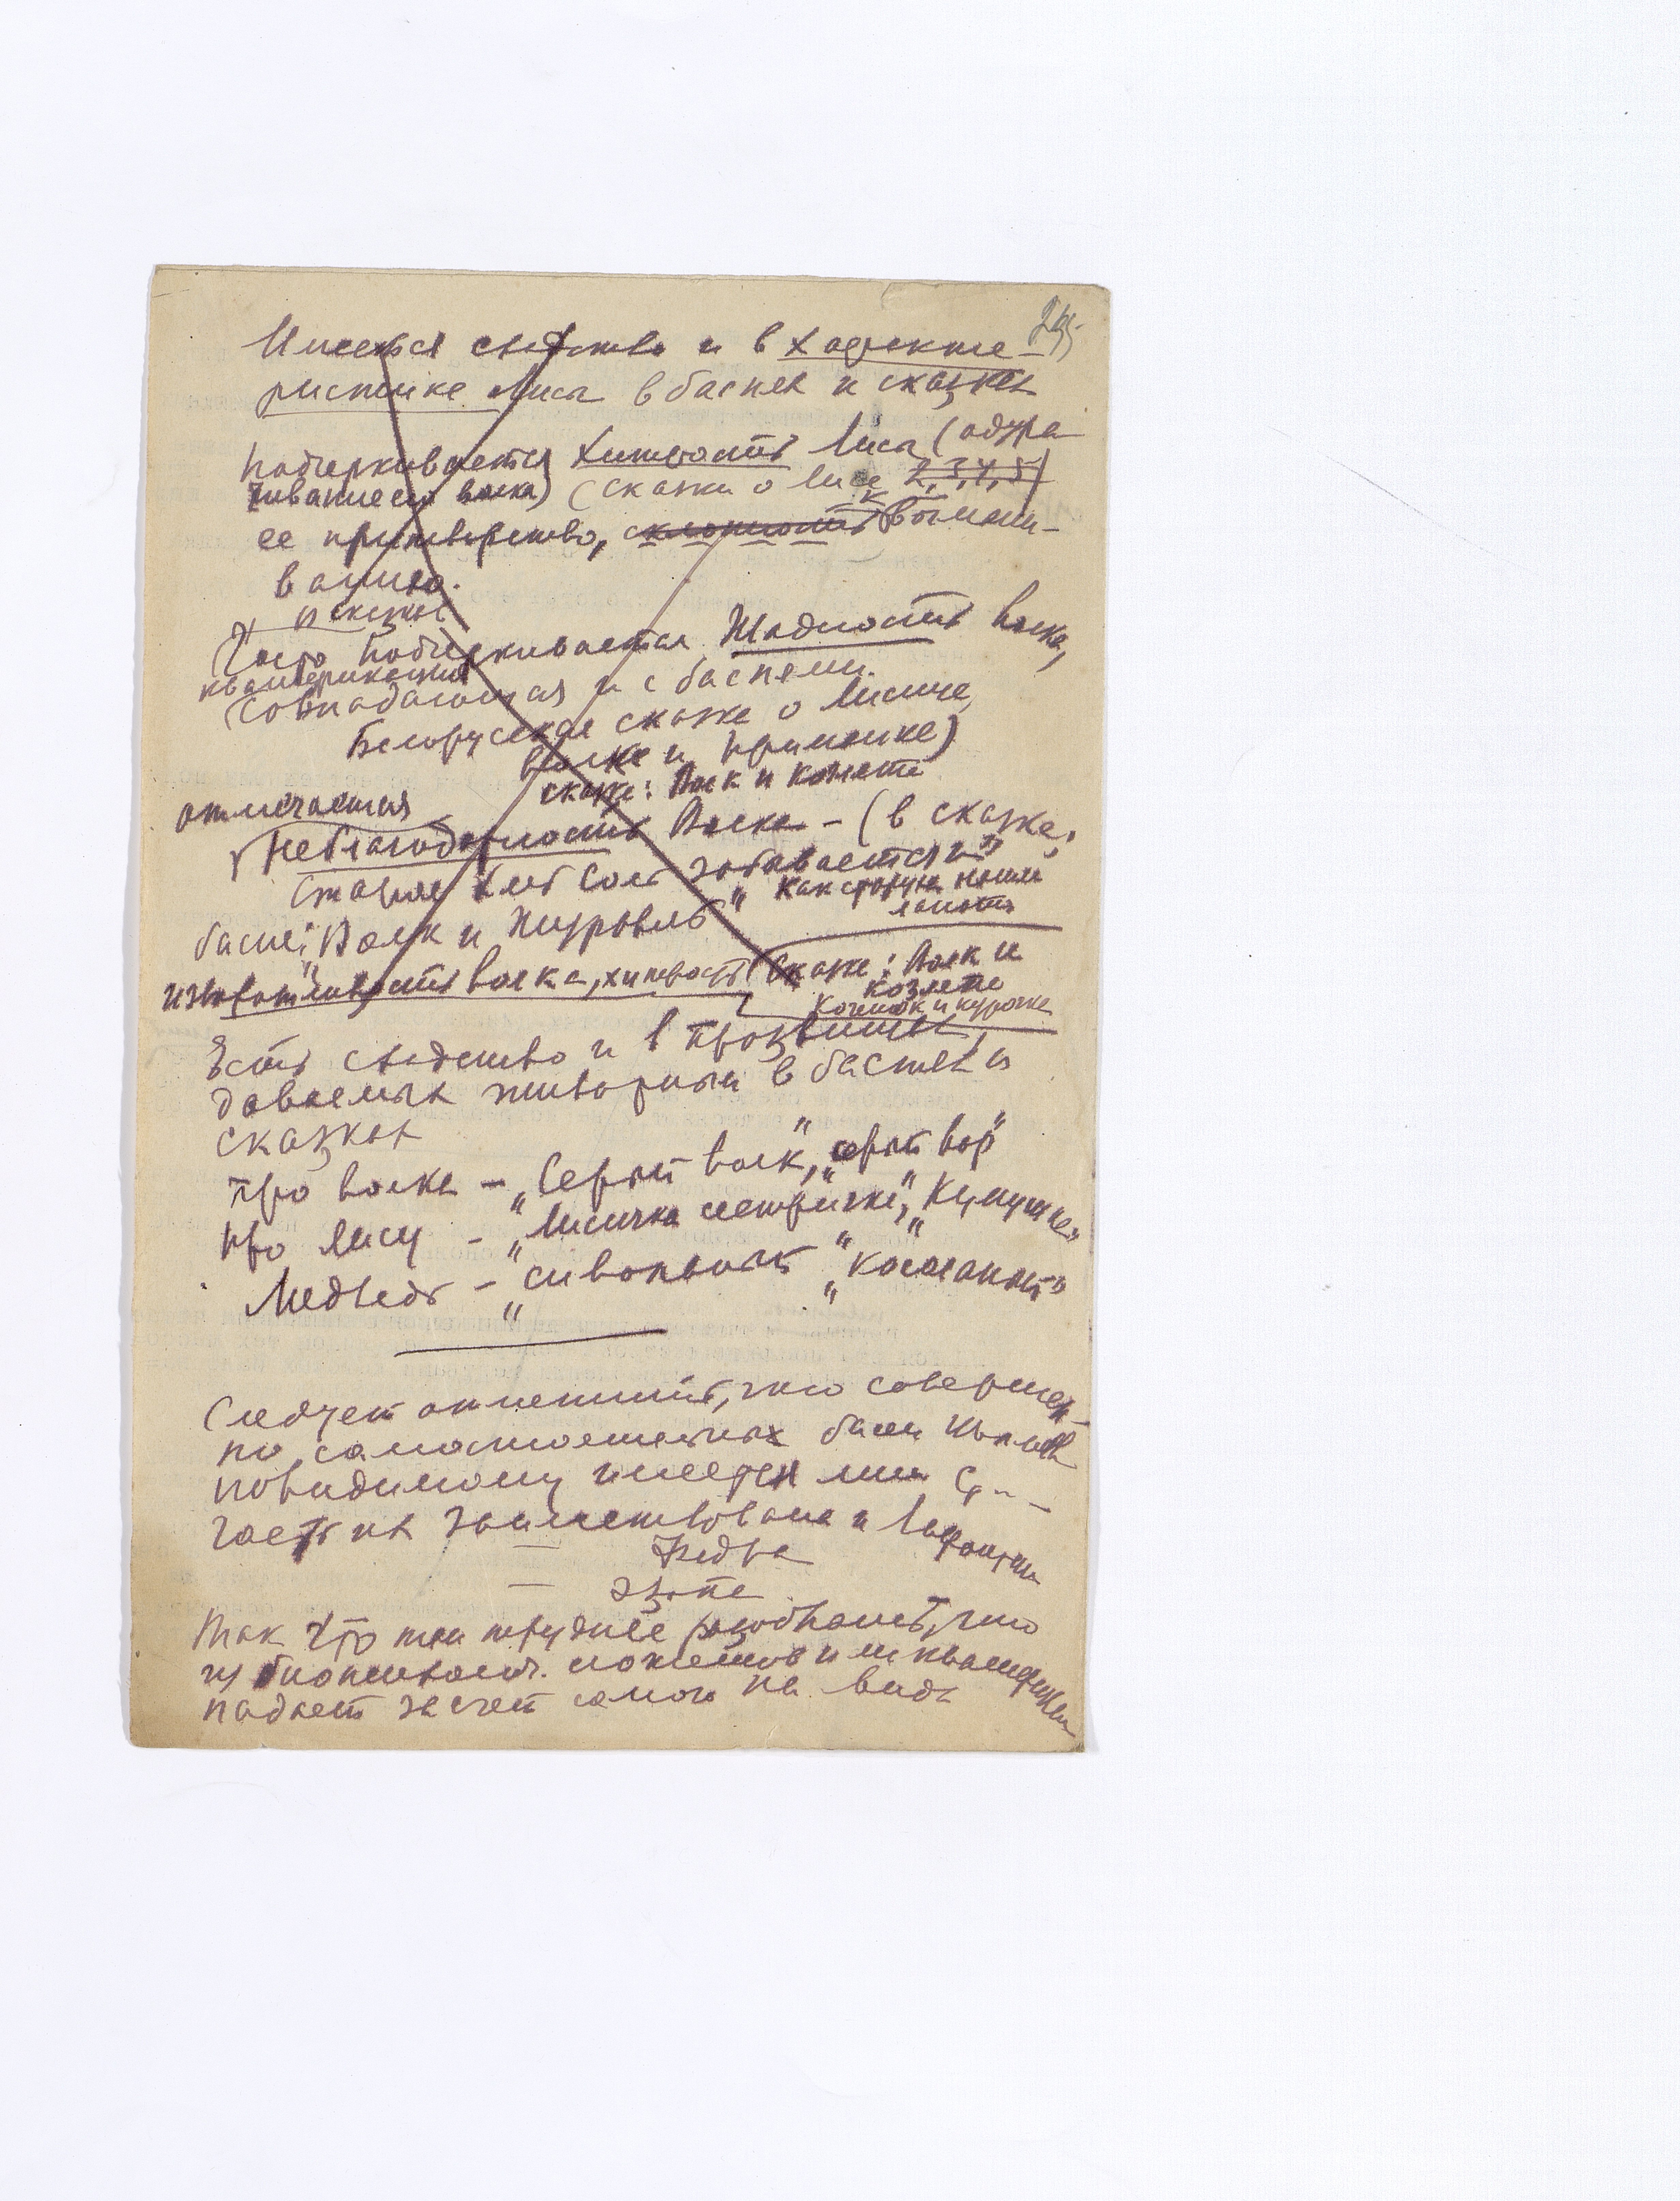 Имеется сходство и в характе-
ристике Лисы в баснях и сказках
Подчеркивается хитрость Лисы (одура-
чивание ею волка) (сказки о лисе 2, 3, 4, 5)
ее притворство, склонность к вымани-
ванию.
в сказках
Часто подчеркивается Жадность волка,
квалификация
совпадающая и с баснями.
Белорусская сказке о Лисице,
волке и
сказке: Волк и козлята
отмечается
Неблагодарность Волка – (в сказке:
Старая Хлеб Соль забывается" и
"Как старуха нашла
лапоть
басне: "Волк и Журавль"
изворотливость волка, хитрость (Сказке: Волк и
козлята
и курочке
Есть сходство и в прозвищах,
даваемых животным в баснях и
сказках
Про волка – "Серый волк", "серый вор"
Про лису – "Лисичка сестричка", "Кумушка"
Медведь – "сиволапый" "Косолапый"
Следует отметить, что совершен-
но самостоятельных басен Крылов
повидимому имеется лишь
часть их заимствована и Лафонтена
– Федра
– Эзопа
Так что там труднее разобрать, что
из сюжетов и их квалификации
падает за счет самого